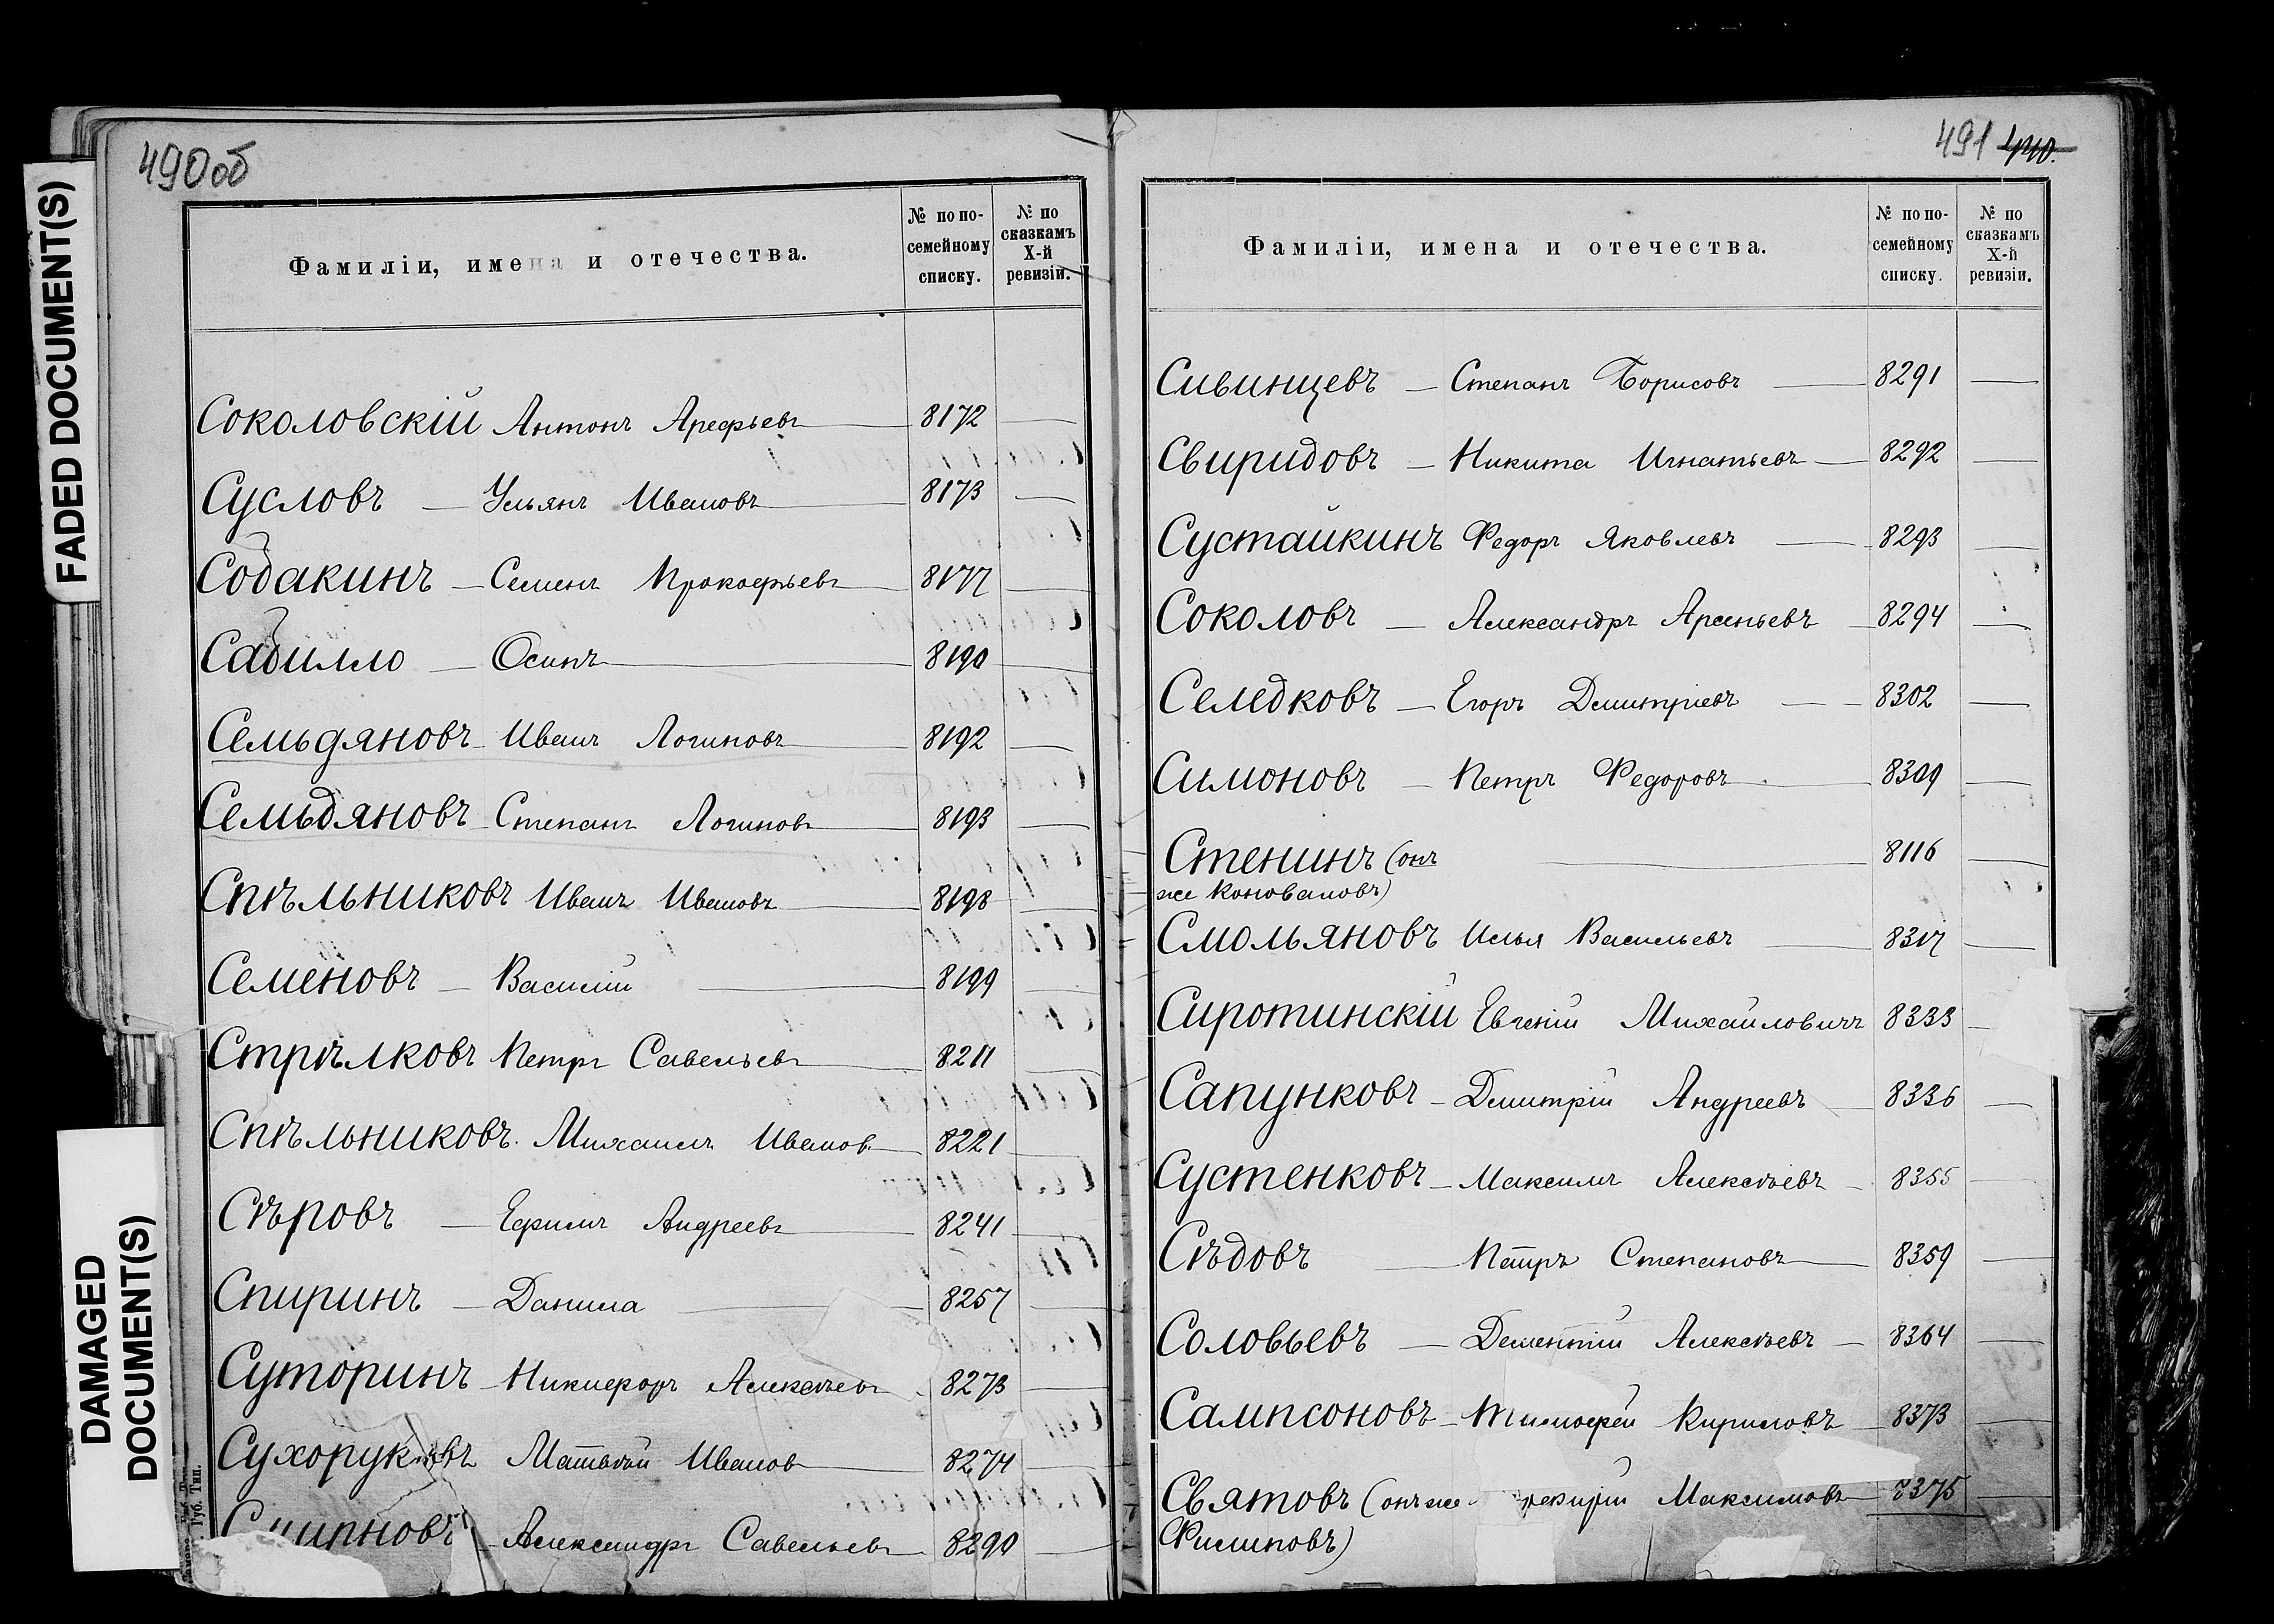 490об
FADED DOCUMENT(S)
DAMAGED
DOCUMENT(S)
Фамиліи, имена и отечества.
№ по по-
семейному
списку.
№ по
сказкамъ
X-й
ревизіи.
Соколовскій Антонъ Арефьевъ 8172
Сусловъ — Ульянъ Ивановъ 8173
Собакинъ — Семенъ Прокофьевъ 8177
Сабилло — Осипъ 8190
Семьдяновъ Иванъ Логиновъ 8192
Семьдяновъ Степанъ Логиновъ 8193
Спѣльниковъ Иванъ Ивановъ 8198
Семеновъ — Василій 8199
Стрѣлковъ Петръ Савельевъ 8211
Спѣльниковъ Михаилъ Иванов. 8221
Сѣровъ — Ефимъ Андреевъ 8241
Спиринъ — Данила 8257
Суторинъ Никифоръ Алексѣевъ 8273
Сухоруковъ Матвѣй Иванов 8274
Смирновъ Александръ Савельевъ 8290
491 440.
Фамиліи, имена и отечества.
№ по по-
семейному
списку.
№ по
сказкамъ
X-й
ревизіи.
Сивинцевъ — Степанъ Борисовъ — 8291 —
Свиридовъ — Никита Игнатьевъ — 8292 —
Сустайкинъ Федоръ Яковлевъ — 8293 —
Соколовъ — Александръ Арсеньевъ — 8294 —
Селедковъ — Егоръ Дмитріевъ — 8302 —
Симоновъ — Петръ Федоровъ — 8309 —
Стенинъ (онъ — 8116 —
же Коноваловъ)
Смольяновъ Илья Васильевъ — 8317 —
Сиротинскій Евгеній Михайловичъ 8333 —
Сапунковъ — Дмитрій Андреевъ — 8336 —
Сустенковъ — Максимъ Алексѣевъ — 8355 —
Сѣдовъ — Петръ Степановъ — 8359 —
Соловьевъ — Дементій Алексѣевъ — 8364 —
Сампсоновъ — Тимофей Кириловъ — 8373 —
Святовъ (онъ же Максимовъ — 8375 —
Филиповъ)